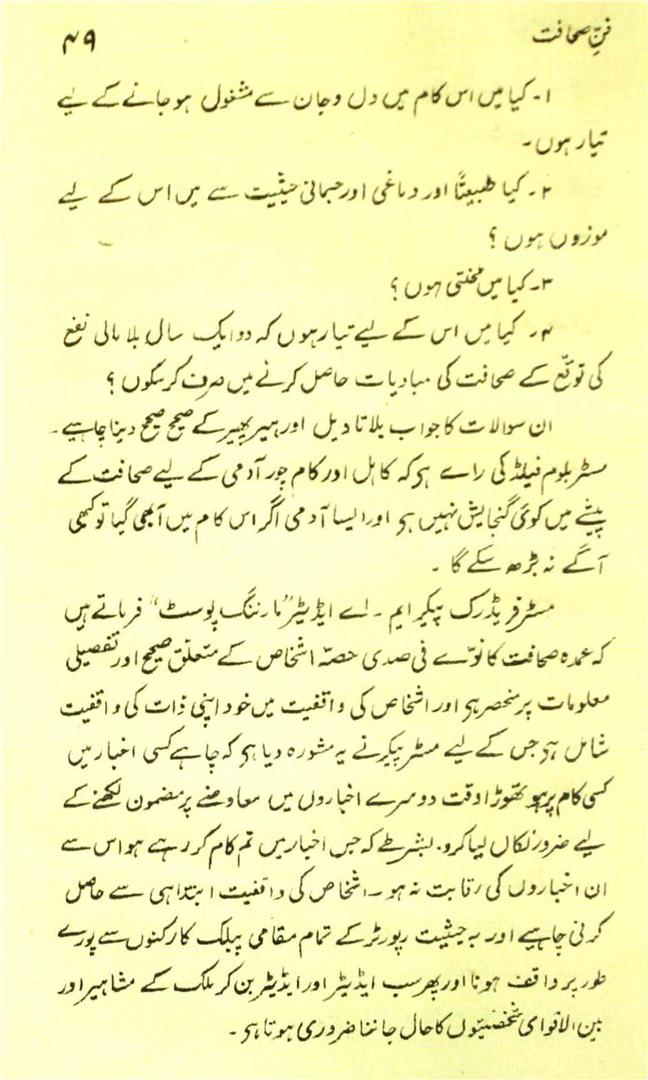 فنِّ صحافت
۴۹
۱۔ کیا میں اس کام میں دل و جان سے مشغول ہو جانے کے لیے
تیار ہوں۔
۲۔ کیا طبیعتًا اور دماغی اور جسمانی حیثیت سے میں اس کے لیے
موزوں ہوں؟
۳۔ کیا میں محنتی ہوں؟
۴۔ کیا میں اس کے لیے تیار ہوں کہ دو ایک سال بلا مالی نفع
کی توقّع کے صحافت کی مبادیات حاصل کرنے میں صرف کر سکوں؟
ان سوالات کا جواب بلا تاویل اور ہیر پھیر کے صحیح صحیح دینا چاہیے۔
مسٹر بلوم فیلڈ کی راے ہی کہ کاہل اور کام چور آدمی کے لیے صحافت کے
پیشے میں کوئی گنجایش نہیں ہی اور ایسا آدمی اگر اس کام میں آبھی گیا تو کبھی
آگے نہ بڑھ سکے گا ۔
مسٹر فریڈرک پیکر ایم ۔ اے ایڈیٹر "مارننگ پوسٹ" فرماتے ہیں
کہ عمدہ صحافت کا نوّے فی صدی حصّہ اشخاص کے متعلق صحیح اور تفصیلی
معلومات پر منحصر ہی اور اشخاص کی واقفیت میں خود اپنی ذات کی واقفیت
شامل ہی جس کے لیے مسٹر پیکر نے یہ مشورہ دیا ہی کہ چاہے کسی اخبار میں
کسی کام پر ہو تھوڑا وقت دوسرے اخباروں میں معاوضے پر مضمون لکھنے کے
لیے ضرور نکال لیا کرو۔ بشرطے کہ جس اخبار میں تم کام کر رہے ہو اس سے
ان اخباروں کی رقابت نہ ہو ۔ اشخاص کی واقفیت ابتدا ہی سے حاصل
کرنی چاہیے اور بہ حیثیت رپورٹر کے تمام مقامی پبلک کارکنوں سے پورے
طور پر واقف ہونا اور پھر سب ایڈیٹر اور ایڈیٹر بن کر ملک کے مشاہیر اور
بین الاقوامی شخصیتوں کا حال جاننا ضروری ہوتا ہی ۔